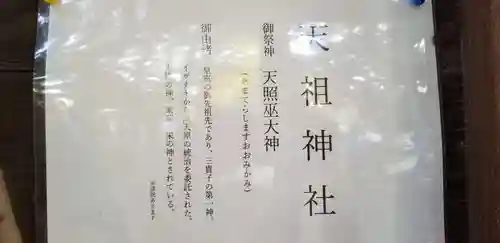 天祖神社
御祭神 天照巫大神
(あまてらしますおおみかみ)
御由緒 皇室の御先祖であり、三貴子の第一神。
イザナギから 原の統治を委託された。
の神、 の神とされている。